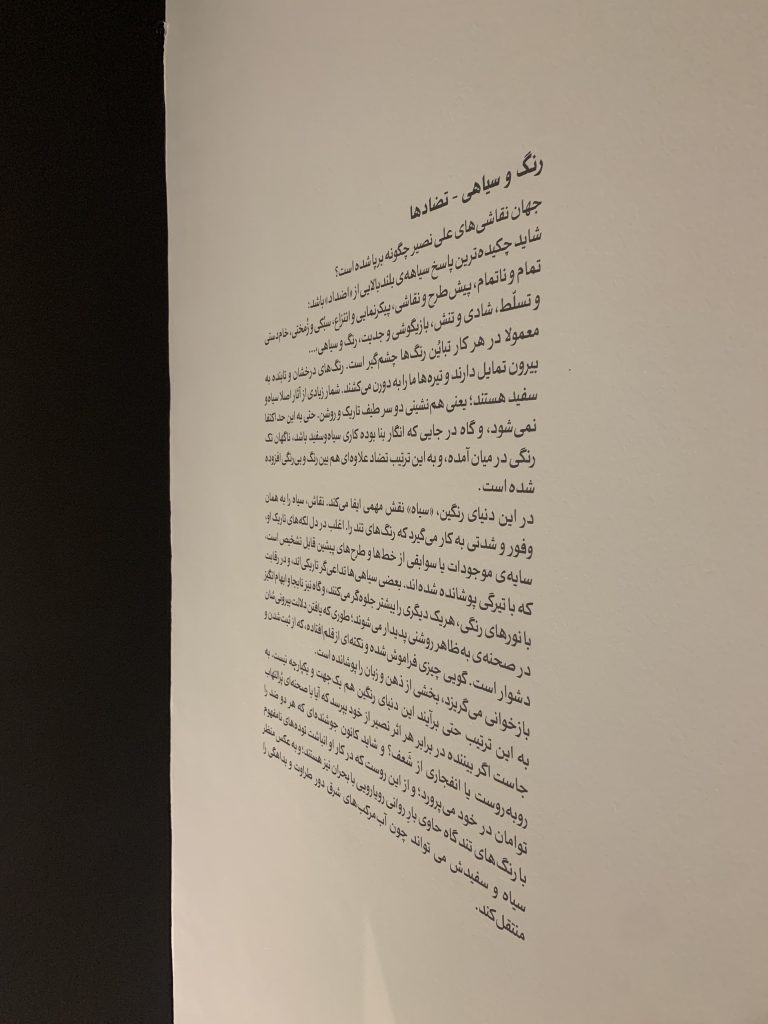 رنگ و سیاهی - تضادها
جهان نقاشی‌های علی نصیر چگونه برپا شده است؟
شاید چکیده‌ترین پاسخ سیاهه‌ی بلندبالایی از «اضداد» باشد:
تمام و ناتمام، پیش‌طرح و نقاشی، پیکرنمایی و انتزاع، سبُکی و زُمختی، خام‌دستی
و تسلّط، شادی و تنش، بازیگوشی و جدیت، رنگ و سیاهی،...
معمولا در هر کار تبایُن رنگ‌ها چشم‌گیر است. رنگ‌های درخشان و تابنده به
بیرون تمایل دارند و تیره‌ها ما را به دورن می‌کشند. شمار زیادی از آثار اصلا سیاه و
سفید هستند؛ یعنی هم‌نشینی دو سر طیف تاریک و روشن. حتی به این حد اکتفا
نمی‌شود، و گاه در جایی که انگار بنا بوده کاری سیاه‌وسفید باشد، ناگهان تک
رنگی در میان آمده، و به این ترتیب تضاد علاوه‌ای هم بین رنگ و بی‌رنگی افزوده
شده است.
در این دنیای رنگین، «سیاه» نقش مهمی ایفا می‌کند. نقاش، سیاه را به همان
وفور و شدتی به کار می‌گیرد که رنگ‌های تند را. اغلب در دل لکه‌های تاریک او،
سایه‌ی موجودات یا سوابقی از خط‌ها و طرح‌های پیشین قابل تشخیص است،
که با تیرگی پوشانده شده‌اند. بعضی سیاهی‌ها تداعی‌گر تاریکی‌اند، و در رقابت
با نورهای رنگی، هریک دیگری را بیشتر جلوه‌گر می‌کنند، و گاه نیز نابجا و ابهام‌انگیز
در صحنه‌ی به‌ظاهر روشنی پدیدار می‌شوند؛ طوری که یافتن دلالت بیرونی‌شان
دشوار است. گویی چیزی فراموش شده و نکته‌ای از قلم افتاده، که از ثبت شدن و
بازخوانی می‌گریزد، بخشی از ذهن و زبان را پوشانده است.
به این ترتیب حتی برآیند این دنیای رنگین هم یک‌جهت و یکپارچه نیست. به
جاست اگر بیننده در برابر هر اثر نصیر از خود بپرسد که آیا با صحنه‌ای پُرالتهاب
روبه‌روست یا انفجاری از شَعف؟ و شاید کانون جوشنده‌ای که هر دو ضد را
توامان در خود می‌پرورد؛ و از این روست که در کار او انباشت توده‌های نامفهوم
با رنگ‌های تند گاه حاوی بار روانی رویارویی با بحران نیز هستند؛ و به عکس منظر
سیاه و سفیدش می تواند چون آب‌مرکب‌های شرق دور طراوت و بداهگی را
منتقل کند.